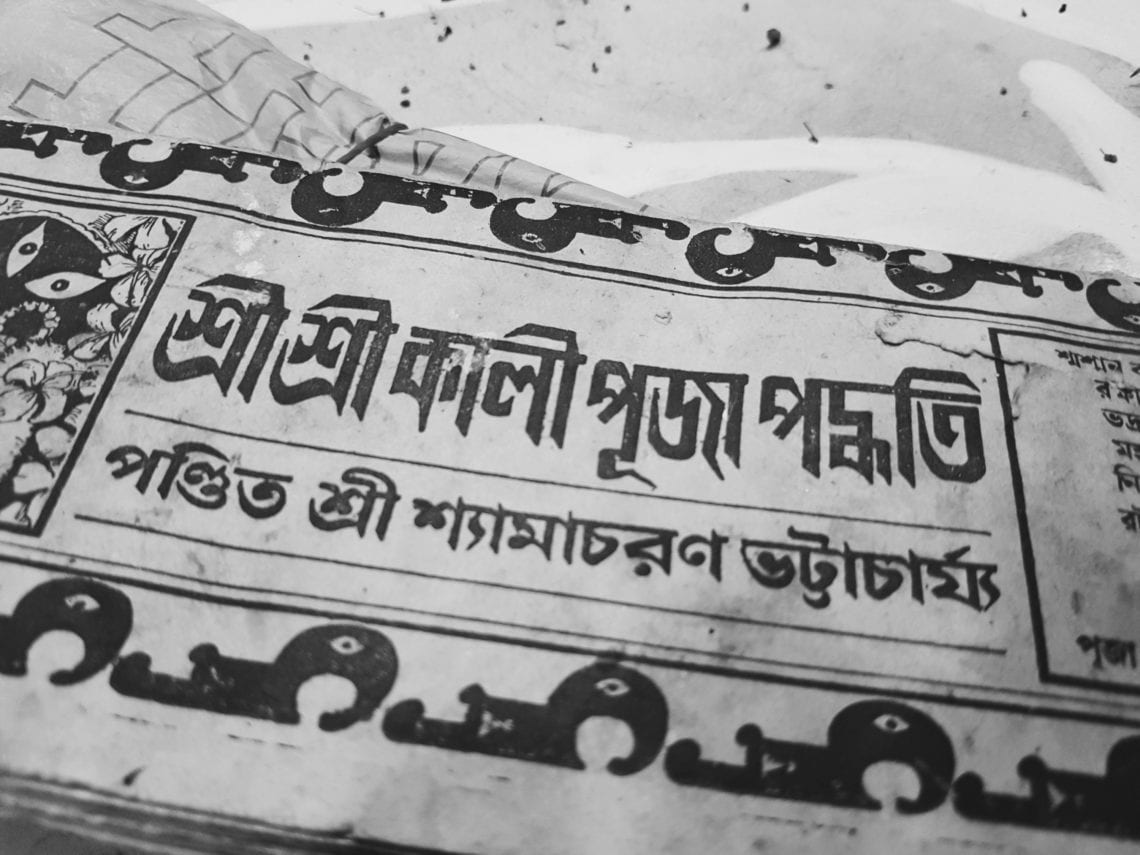 শ্রীশ্রী কালী পূজা পদ্ধতি
পণ্ডিত শ্রী শ্যামাচরণ ভট্টাচার্য্য
শ্মশান
পূজা